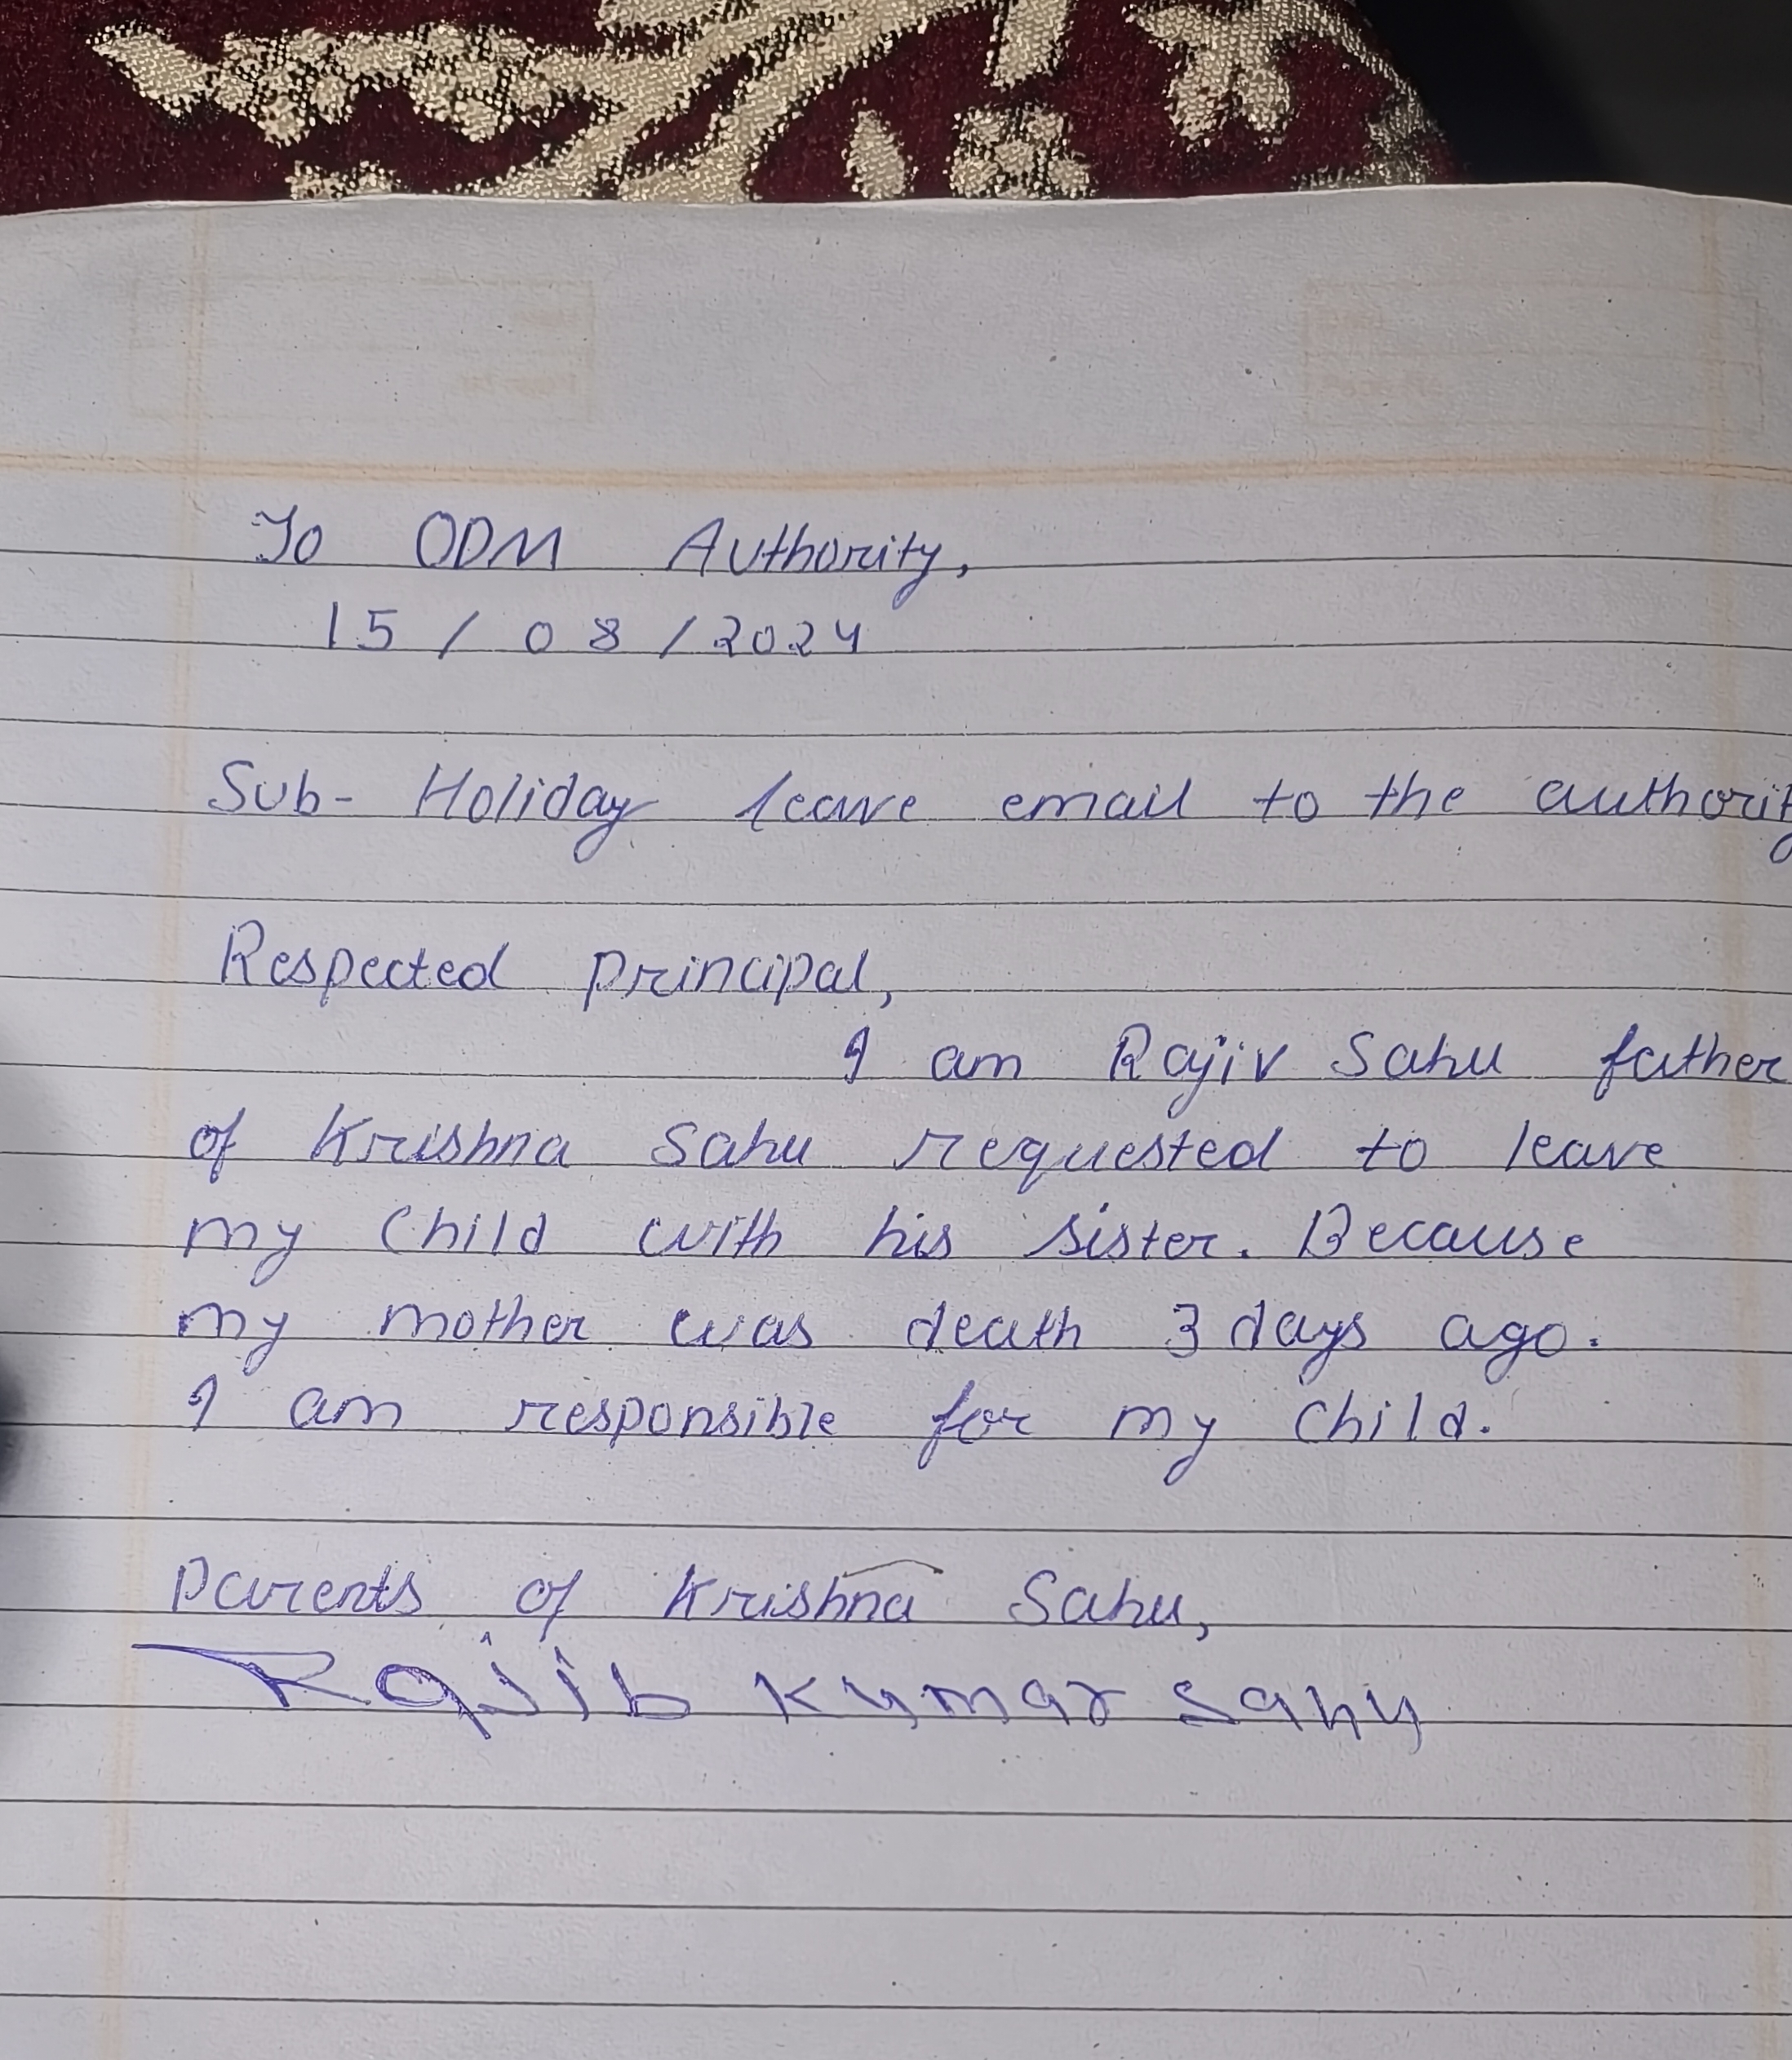 To ODM Authority,
15 / 08 / 2024
Sub- Holiday leave email to the authority
Respected principal,
I am Rajiv Sahu father
of Krishna Sahu requested to leave
my child with his sister. Because
my mother was death 3 days ago.
I am responsible for my child.
Parents of Krishna Sahu,
Rajib Kumar Sahu